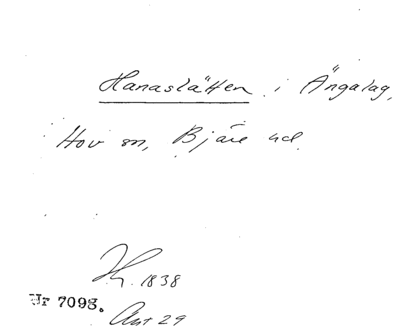 Hanaslätten i Ängalag,
Hov sn, Bjäre hd.
1838
Nr 7098.
Ant 29